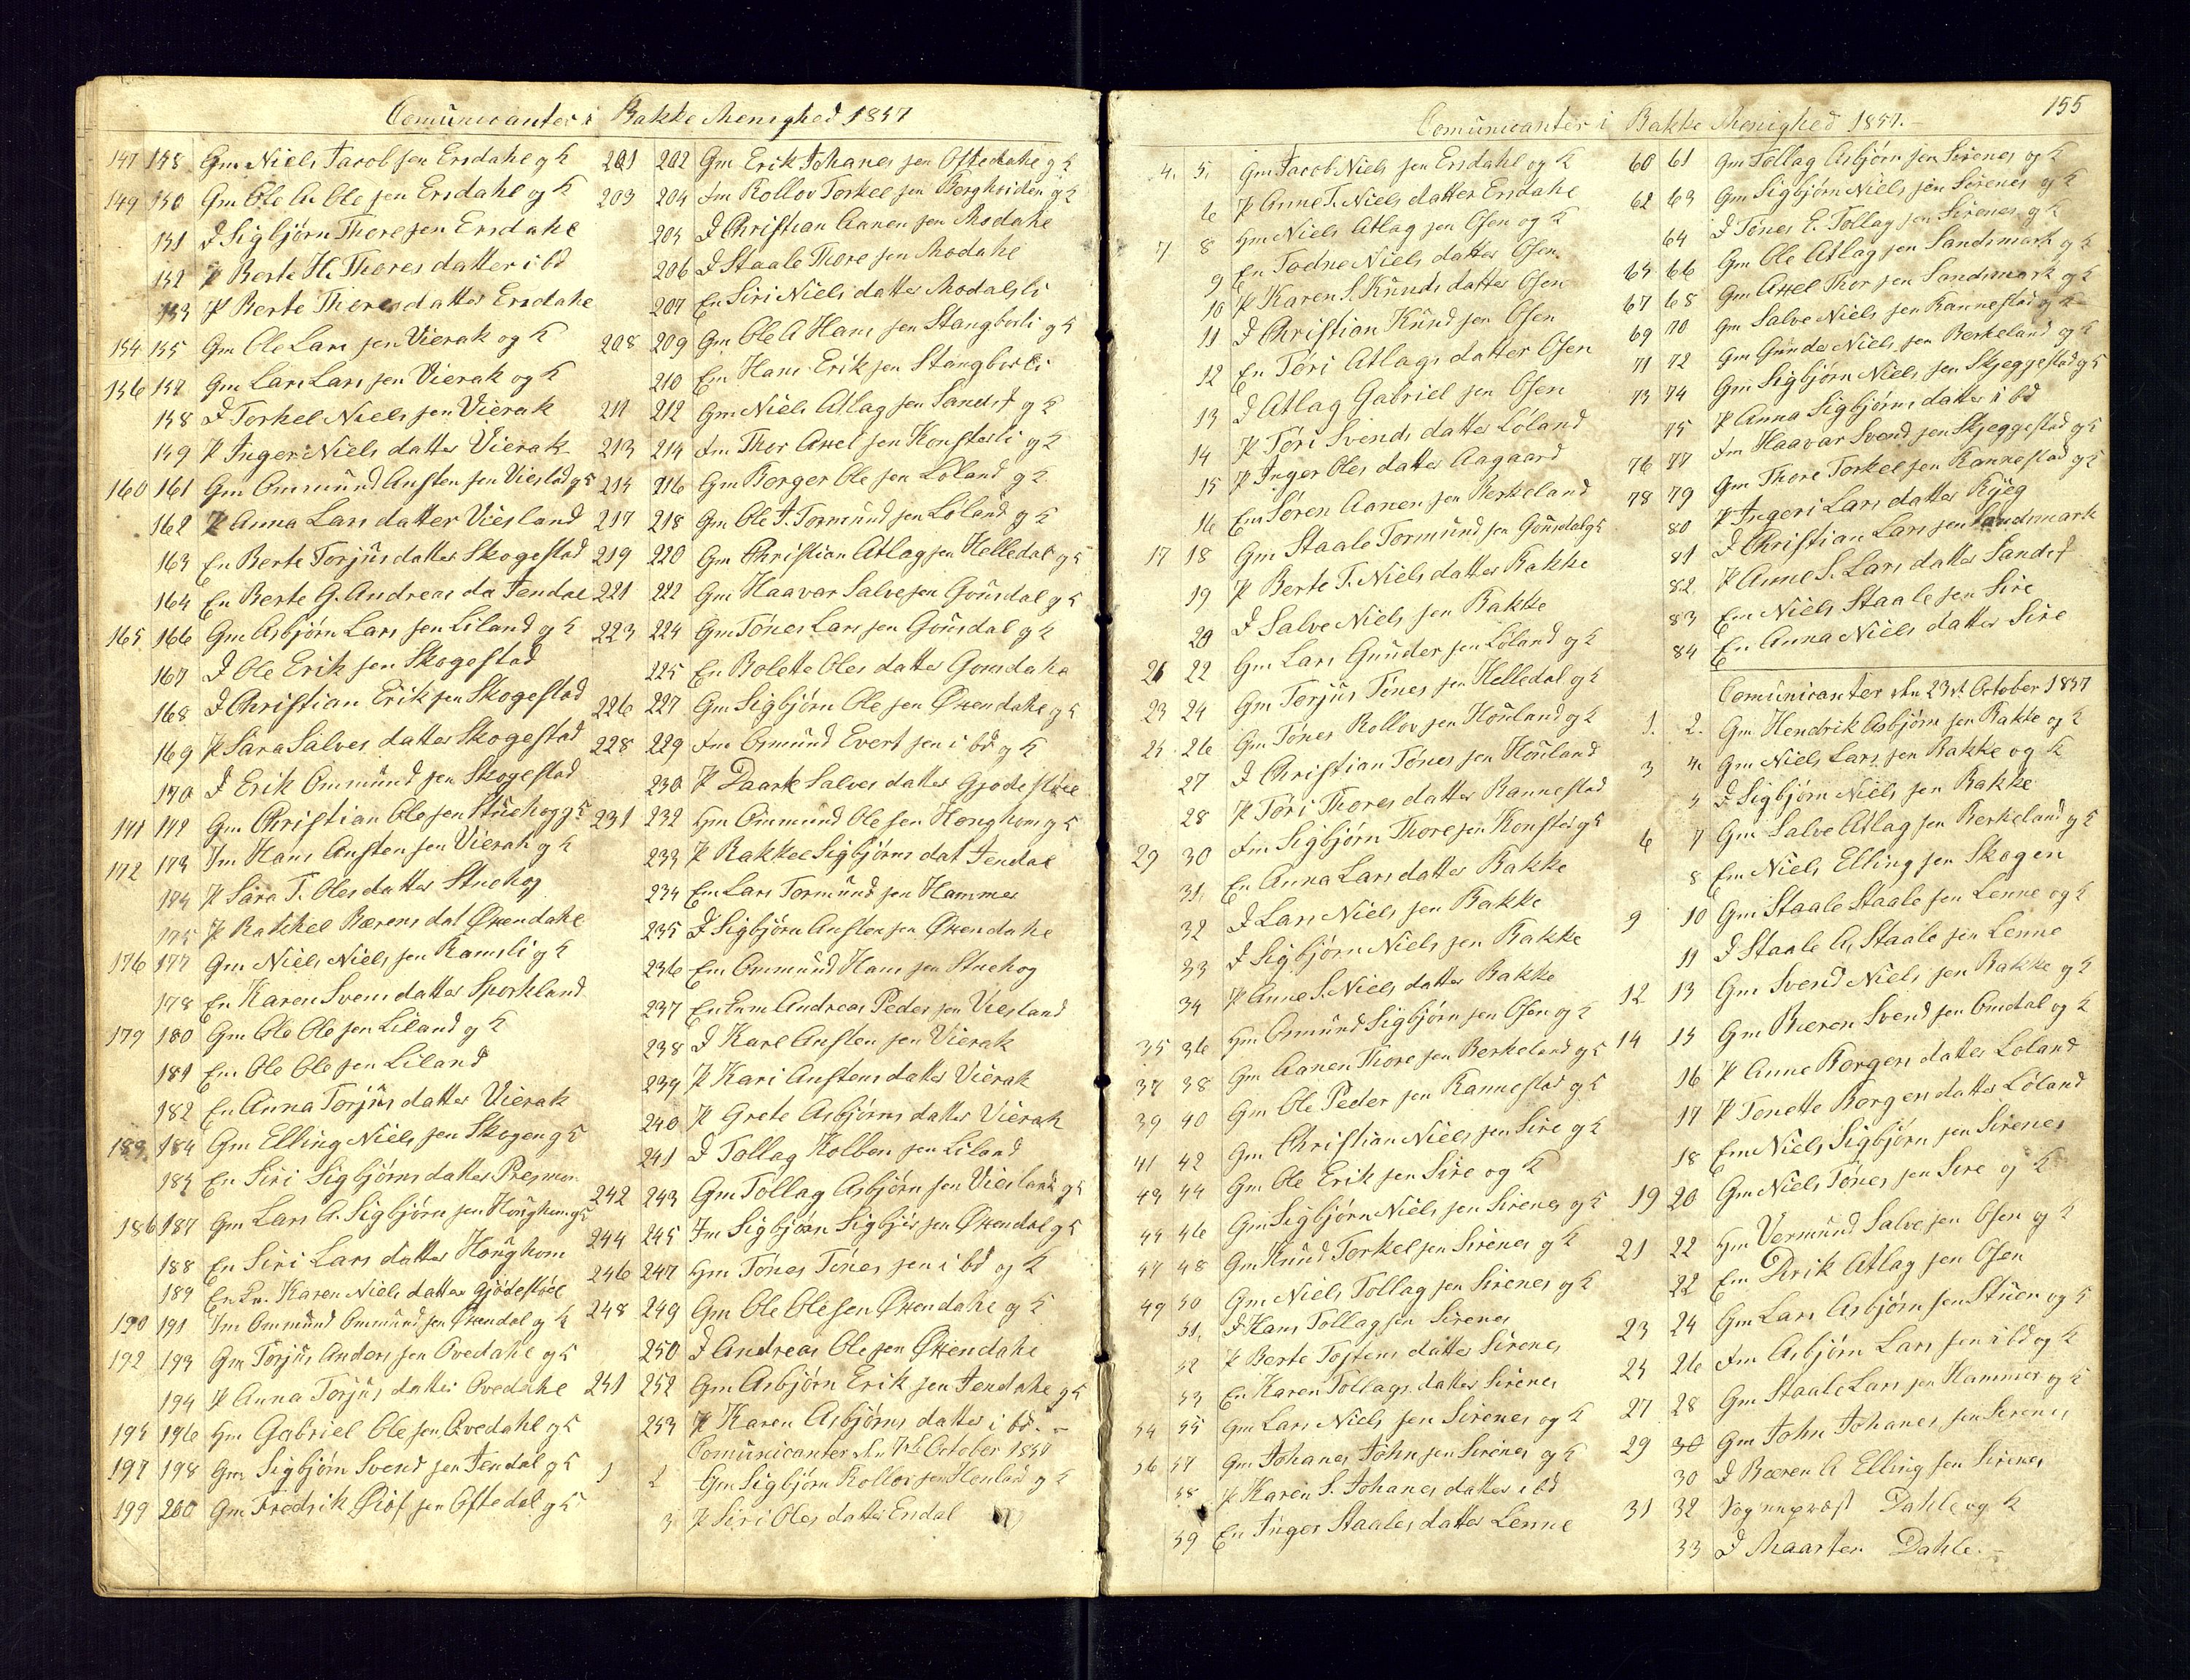 Comunicanter i Bakke Menighed 1857
147 148 Gm Niels Jacobsen Ersdahl og K
149 150 Gm Ole A. Olesen Ersdahl og K
151 D Sigbjørn Thoresen Ersdahl
152 P Berte H. Thoresdatter i bd
153 P Berte Thoresdatter Ersdahl
154 155 Gm Ole Larssen Vierak og K
156 157 Gm Lars Larssen Vierak og K
158 D Torkel Nielssen Vierak
159 P Inger Nielsdatter Vierak
160 161 Gm Ommund Austensen Viesland g K
162 P Anna Larsdatter Viesland
163 En Berte Torjusdatter Skogestad
164 En Berte G. Andreas da Jendal
165 166 Gm Asbjørn Larssen Liland og K
167 D Ole Eriksen Skogestad
168 D Christian Eriksen Skogestad
169 P Sara Salvesdatter Skogestad
170 D Erik Ommundsen Skogestad
171 172 Gm Christian Olesen Stuehog g K
172 173 Im Hans Austensen Vierak og K
174 P Sara T. Olesdatter Stuehog
175 P Rakkel Bærensdat Øxendahl
176 177 Gm Niels Nielssen Ramsli g K
178 En Karen Svensdatter Sporkland
179 180 Gm Ole Olesen Liland g K
181 Em Ole Olesen Liland
182 En Anna Torjusdatter Vierak
183 184 Gm Elling Nielssen Skogen g K
185 En Siri Sigbjørnsdatter
186 187 Gm Lars A. Sigbjørnsen Honghom g K
188 En Siri Larsdatter Honghom
189 En Karen Nielsdatter Gjødestøl
190 191 Im Ommund Ommundsen Øxendal og K
192 193 Gm Torjus Anderssen Qvedahl g K
194 P Anna Torjusdatter Qvedahl
195 196 Hm Gabriel Olesen Qvedahl g K
197 198 Gm Sigbjørn Svendsen Jendal g K
199 200 Gm Fredrik Olofsen Oftedal g K
201 202 Gm Erik Johanessen Oftedahl g K
203 204 Im Rollov Torkelsen Bergheiden g K
205 D Christian Aanensen Modahl
206 D Staale Thoresen Modahl
207 En Siri Nielsdatter Modalsli
208 209 Gm Ole A Hanssen Stangborli g K
210 Em Hans Eriksen Stangborli
211 212 Gm Niels Atlagsen Sandsf g K
213 214 Im Thor Axelsen Konsterli g K
215 216 Gm Borger Olesen Løland g K
217 218 Gm Ole T. Tormundsen Løland g K
219 220 Gm Christian Atlagsen Helledal g K
221 222 Gm Haavar Salvesen Gousdal g K
223 224 Gm Tønes Larssen Gousdal g K
225 En Bolette Olesdatter Gousdahl
226 227 Gm Sigbjørn Olesen Øxendahl g K
228 229 Im Osmund Evertsen i bd g K
230 P Daarte Salvesdatter Gjødestøl
231 232 Hm Ommund Olesen Honghom g K
233 P Rakkel Sigbjørnsdat Jendal
234 Em Lars Tormundsen Hammer
235 D Sigbjørn Austensen Øxendahl
236 Em Ommund Hanssen Stuehog
237 En Andreas Pedersen Viesland
238 D Karl Austensen Vierak
239 P Kari Austensdatter Vierak
240 P Grete Asbjørnsdatter Vierak
241 D Tollag Kolbensen Liland
242 243 Gm Tollag Asbjørnsen Viesland g K
244 245 Im Sigbjørn Sigbjørnsen Øxendal g K
246 247 Hm Tønes Tønessen i bd og K
248 249 Gm Ole Olesen Øxendahl g K
250 D Andreas Olesen Øxendahl
251 252 Gm Asbjørn Eriksen Jendahl g K
253 P Karen Asbjørnsdatter i bd. -
Comunicanter dn 7de October 1857
1 2 Gm Sigbjørn Rollovsen Honland g K
3 P Siri Olesdatter Ersdal
155
Comunicanter i Bakke Menighed 1857. -
4. 5. Gm Jacob Nielssen Ersdahl og K
6 P Anne T. Nielsdatter Ersdahl
7 8 Hm Niels Atlagsen Osen og K
9 En Todne Nielsdatter Osen
10 P Karen S. Knudsdatter Osen
11 D Christian Knudsen Osen
12 En Tøri Atlagsdatter Osen
13 D Atlag Gabrielsen Osen
14 P Tøri Svendsdatter Løland
15 P Inger Olesdatter Aagaard
16 Em Søren Aanensen Berkeland
17 18 Gm Staale Tormundsen Gousdal g K
19 P Berte T. Nielsdatter Bakke
20 D Salve Nielssen Bakke
21 22 Gm Lars Gundersen Løland og K
23 24 Gm Torjus Tønessen Helledal g K
25 26 Gm Tønes Rollovsen Honland og K
27 D Christian Tønessen Honland
28 P Tøri Thoresdatter Rannestad
29 30 Im Sigbjørn Thoresen Konsterl g K
31. En Anna Larsdatter Bakke
32 D Lars Nielssen Bakke
33 D Sigbjørn Nielssen Bakke
34 P Anne S. Nielsdatter Bakke
35 36 Hm Osmund Sigbjørnsen Osen g K
37 38 Gm Aanen Thoresen Berkeland g K
39 40 Gm Ole Pedersen Rannestad g K
41 42 Gm Christian Nielssen Sire g K
43 44 Gm Ole Eriksen Sire og K
45 46 Gm Sigbjørn Nielssen Sirenes g K
47 48 Gm Knud Torkelsen Sirenes g K
49 50 Gm Niels Tollagsen Sirenes og K
51. D Hans Tollagsen Sirenes
52 P Berte Tostensdatter Sirenes
53 En Karen Tollagsdatter Sirenes
54 55 Gm Lars Nielssen Sirenes og K
56 57 Gm Johanes Johnsen Sirenes og K
58 P Karen S. Johanesdatter i bd
59 En Inger Staalesdatter Lenne
60 61 Gm Tollag Asbjørnsen Sirenes og K
62 63 Gm Sigbjørn Nielssen Sirenes g K
64 D Tønes E. Tollagsen Sirenes g K
65 66 Gm Ole Atlagsen Sandsmark g K
67 68 Gm Axel Thorsen Sandsmark g K
69 70 Gm Salve Nielssen Rannestad g K
71 72 Gm Gunder Nielssen Berkeland og K
73 74 Gm Sigbjørn Nielssen Skjeggestad g K
75 P Anna Sigbjørnsdatter i bd
76 77 Im Haavar Svendsen Skjeggestad g K
78 79 Gm Thore Torkelsen Rannestad g K
80 P Ingeri Larsdatter Ryeg
81 D Christian Larssen Sandsmark
82. P Anne S. Larsdatter Sandsf
83 Em Niels Staalesen Sire
84 En Anna Nielsdatter Sire
Comunicanter dn 23d October 1857
1. 2. Gm Hendrik Asbjørnsen Bakke og K
3 4. Gm Niels Larssen Bakke og K
5 D Sigbjørn Nielssen Bakke
6 7 Gm Salve Atlagsen Berkeland g K
8 Em Niels Ellingsen Skogen
9 10 Gm Staale Staalesen Lenne og K
11 D Staale A. Staalesen Lenne
12 13 Gm Svend Nielssen Bakke g K
14 15 Gm Bæren Svendsen Omdal og K
16 P Anne Borgersdatter Løland
17 P Tonette Borgersdatter Løland
18 Em Niels Sigbjørnsen Sirenes
19 20 Gm Niels Tønessen Sire og K
21 22 Hm Vermund Salvesen Osen og K
22 Em Dirik Atlagsen Osen
23 24 Gm Lars Asbjørnsen Stuen og K
25 26 Im Asbjørn Larssen i bd og K
27 28 Gm Staale Larssen Hammer og K
29 30 Gm John Johanessen Sirenes
30 D Bæren A Ellingsen Sirenes
31 32 Sognepræst Dahle og K
33 D Maarten Dahle. -